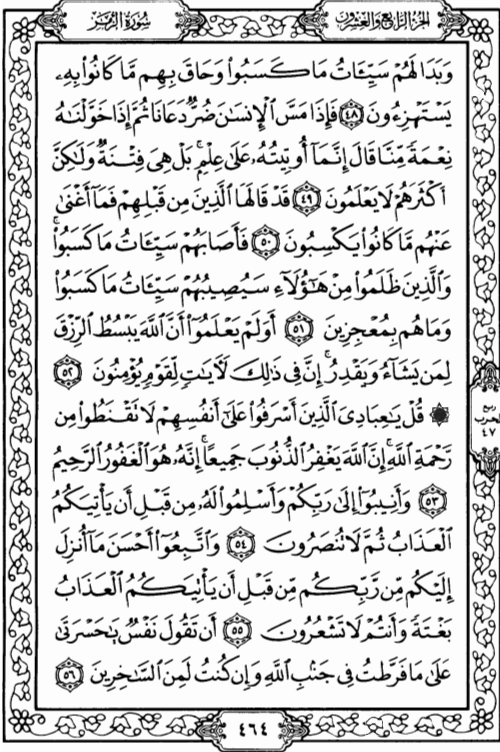 سورة الزمر
الجزء الرابع والعشرون
وَبَدَا لَهُمْ سَيِّـَٔاتُ مَا كَسَبُوا۟ وَحَاقَ بِهِم مَّا كَانُوا۟ بِهِۦ
يَسْتَهْزِءُونَ ٤٨ فَإِذَا مَسَّ ٱلْإِنسَـٰنَ ضُرٌّ دَعَانَا ثُمَّ إِذَا خَوَّلْنَـٰهُ
نِعْمَةً مِّنَّا قَالَ إِنَّمَآ أُوتِيتُهُۥ عَلَىٰ عِلْمٍۭ ۚ بَلْ هِىَ فِتْنَةٌ وَلَـٰكِنَّ
أَكْثَرَهُمْ لَا يَعْلَمُونَ ٤٩ قَدْ قَالَهَا ٱلَّذِينَ مِن قَبْلِهِمْ فَمَآ أَغْنَىٰ
عَنْهُم مَّا كَانُوا۟ يَكْسِبُونَ ٥٠ فَأَصَابَهُمْ سَيِّـَٔاتُ مَا كَسَبُوا۟ ۚ
وَٱلَّذِينَ ظَلَمُوا۟ مِنْ هَـٰٓؤُلَآءِ سَيُصِيبُهُمْ سَيِّـَٔاتُ مَا كَسَبُوا۟
وَمَا هُم بِمُعْجِزِينَ ٥١ أَوَلَمْ يَعْلَمُوٓا۟ أَنَّ ٱللَّهَ يَبْسُطُ ٱلرِّزْقَ
لِمَن يَشَآءُ وَيَقْدِرُ ۚ إِنَّ فِى ذَٰلِكَ لَـَٔايَـٰتٍ لِّقَوْمٍ يُؤْمِنُونَ ٥٢
۞ قُلْ يَـٰعِبَادِىَ ٱلَّذِينَ أَسْرَفُوا۟ عَلَىٰٓ أَنفُسِهِمْ لَا تَقْنَطُوا۟ مِن
رَّحْمَةِ ٱللَّهِ ۚ إِنَّ ٱللَّهَ يَغْفِرُ ٱلذُّنُوبَ جَمِيعًا ۚ إِنَّهُۥ هُوَ ٱلْغَفُورُ ٱلرَّحِيمُ
٥٣ وَأَنِيبُوٓا۟ إِلَىٰ رَبِّكُمْ وَأَسْلِمُوا۟ لَهُۥ مِن قَبْلِ أَن يَأْتِيَكُمُ
ٱلْعَذَابُ ثُمَّ لَا تُنصَرُونَ ٥٤ وَٱتَّبِعُوٓا۟ أَحْسَنَ مَآ أُنزِلَ
إِلَيْكُم مِّن رَّبِّكُم مِّن قَبْلِ أَن يَأْتِيَكُمُ ٱلْعَذَابُ
بَغْتَةً وَأَنتُمْ لَا تَشْعُرُونَ ٥٥ أَن تَقُولَ نَفْسٌ يَـٰحَسْرَتَىٰ
عَلَىٰ مَا فَرَّطتُ فِى جَنۢبِ ٱللَّهِ وَإِن كُنتُ لَمِنَ ٱلسَّـٰخِرِينَ ٥٦
ربع
الحزب
٤٧
٤٦٤